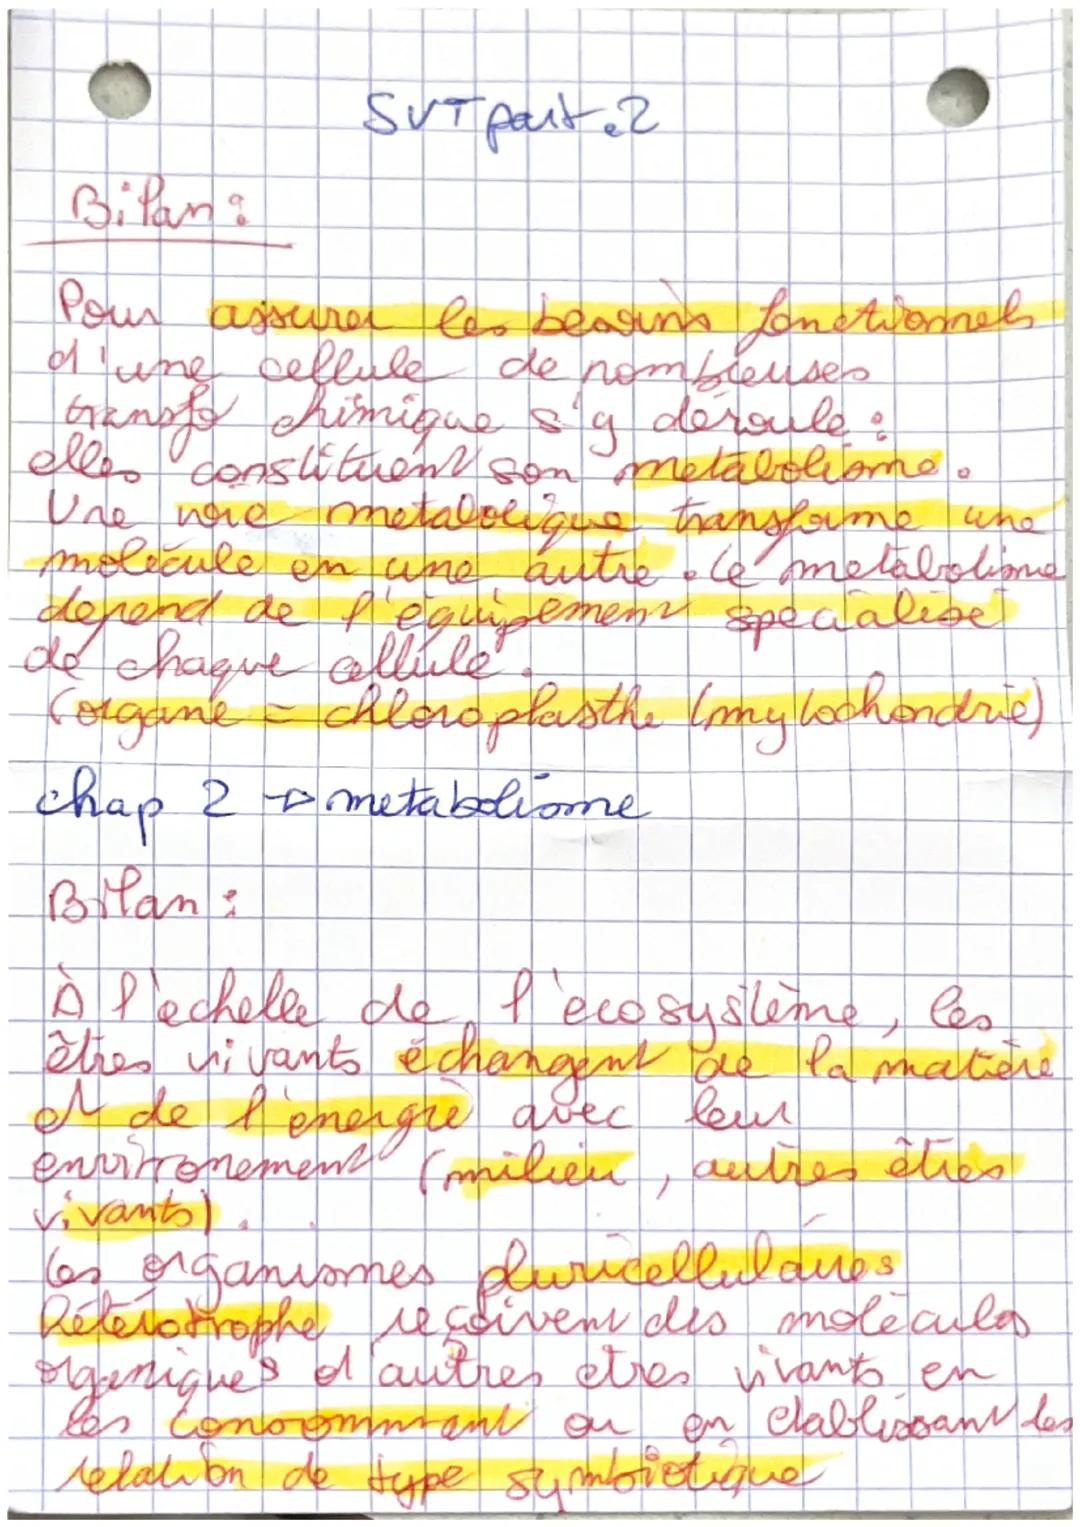 SVT part.2
Bilan :
Pour assurer les besoins fonctionnels
d'une cellule de nombreuses
transfo chimique s'y déroule :
elles constituent son métabolisme.
Une voie métabolique transforme une
molécule en une autre. Le métabolisme
dépend de l'équipement spécialisé
de chaque cellule.
(organe = chloroplasthe (mytochondrie)
chap 2 → metabolisme
Bilan :
À l'échelle de l'écosystème, les
êtres vivants échangent de la matière
et de l'énergie avec leur
envirronement (milieu, autres êtres
vivants).
Les organismes pluricellulaires
hétérotrophe reçoivent des molécules
organiques d'autres etres vivants en
les consommant ou en établissant les
relation de type symbiotique